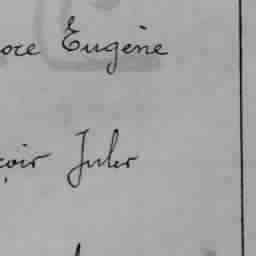 ore Eugène
çois Jules